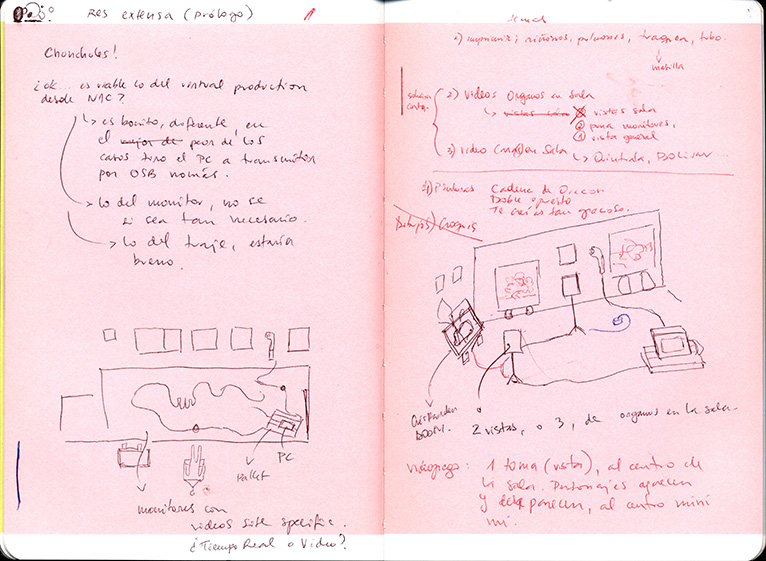 Res extensa (prólogo)
Choncholes!
¿ok... es viable lo del virtual production
desde NAC?
↳ es bonito, diferente, en
el mejor de peor de los
casos tiro el PC a transmitir
por OSB nomás.
→ lo del monitor, no se
si sea tan necesario.
→ lo del traje, estaría
bueno.
Pallet
PC
monitores con
videos site specific.
¿Tiempo Real o Video?
1) imprimir; riñones, pulmones, traquea, tubo.
2) videos Organos en sala
↳ vistas sala
vistas sala
② para monitores,
① vista general
3) video (mas) en Sala
↳ Quintrala, Bolivar...
4) Pinturas Cadena de Oracion
Doble opuesto
Te creís tan gracioso.
Dibujos) Croquis
DOOM.
2 vistas, o 3, de organos en la sala.
Videojuego: 1 toma (vista), al centro de
la sala. Personajes aparecen
y desaparecen, al centro mini
mi.